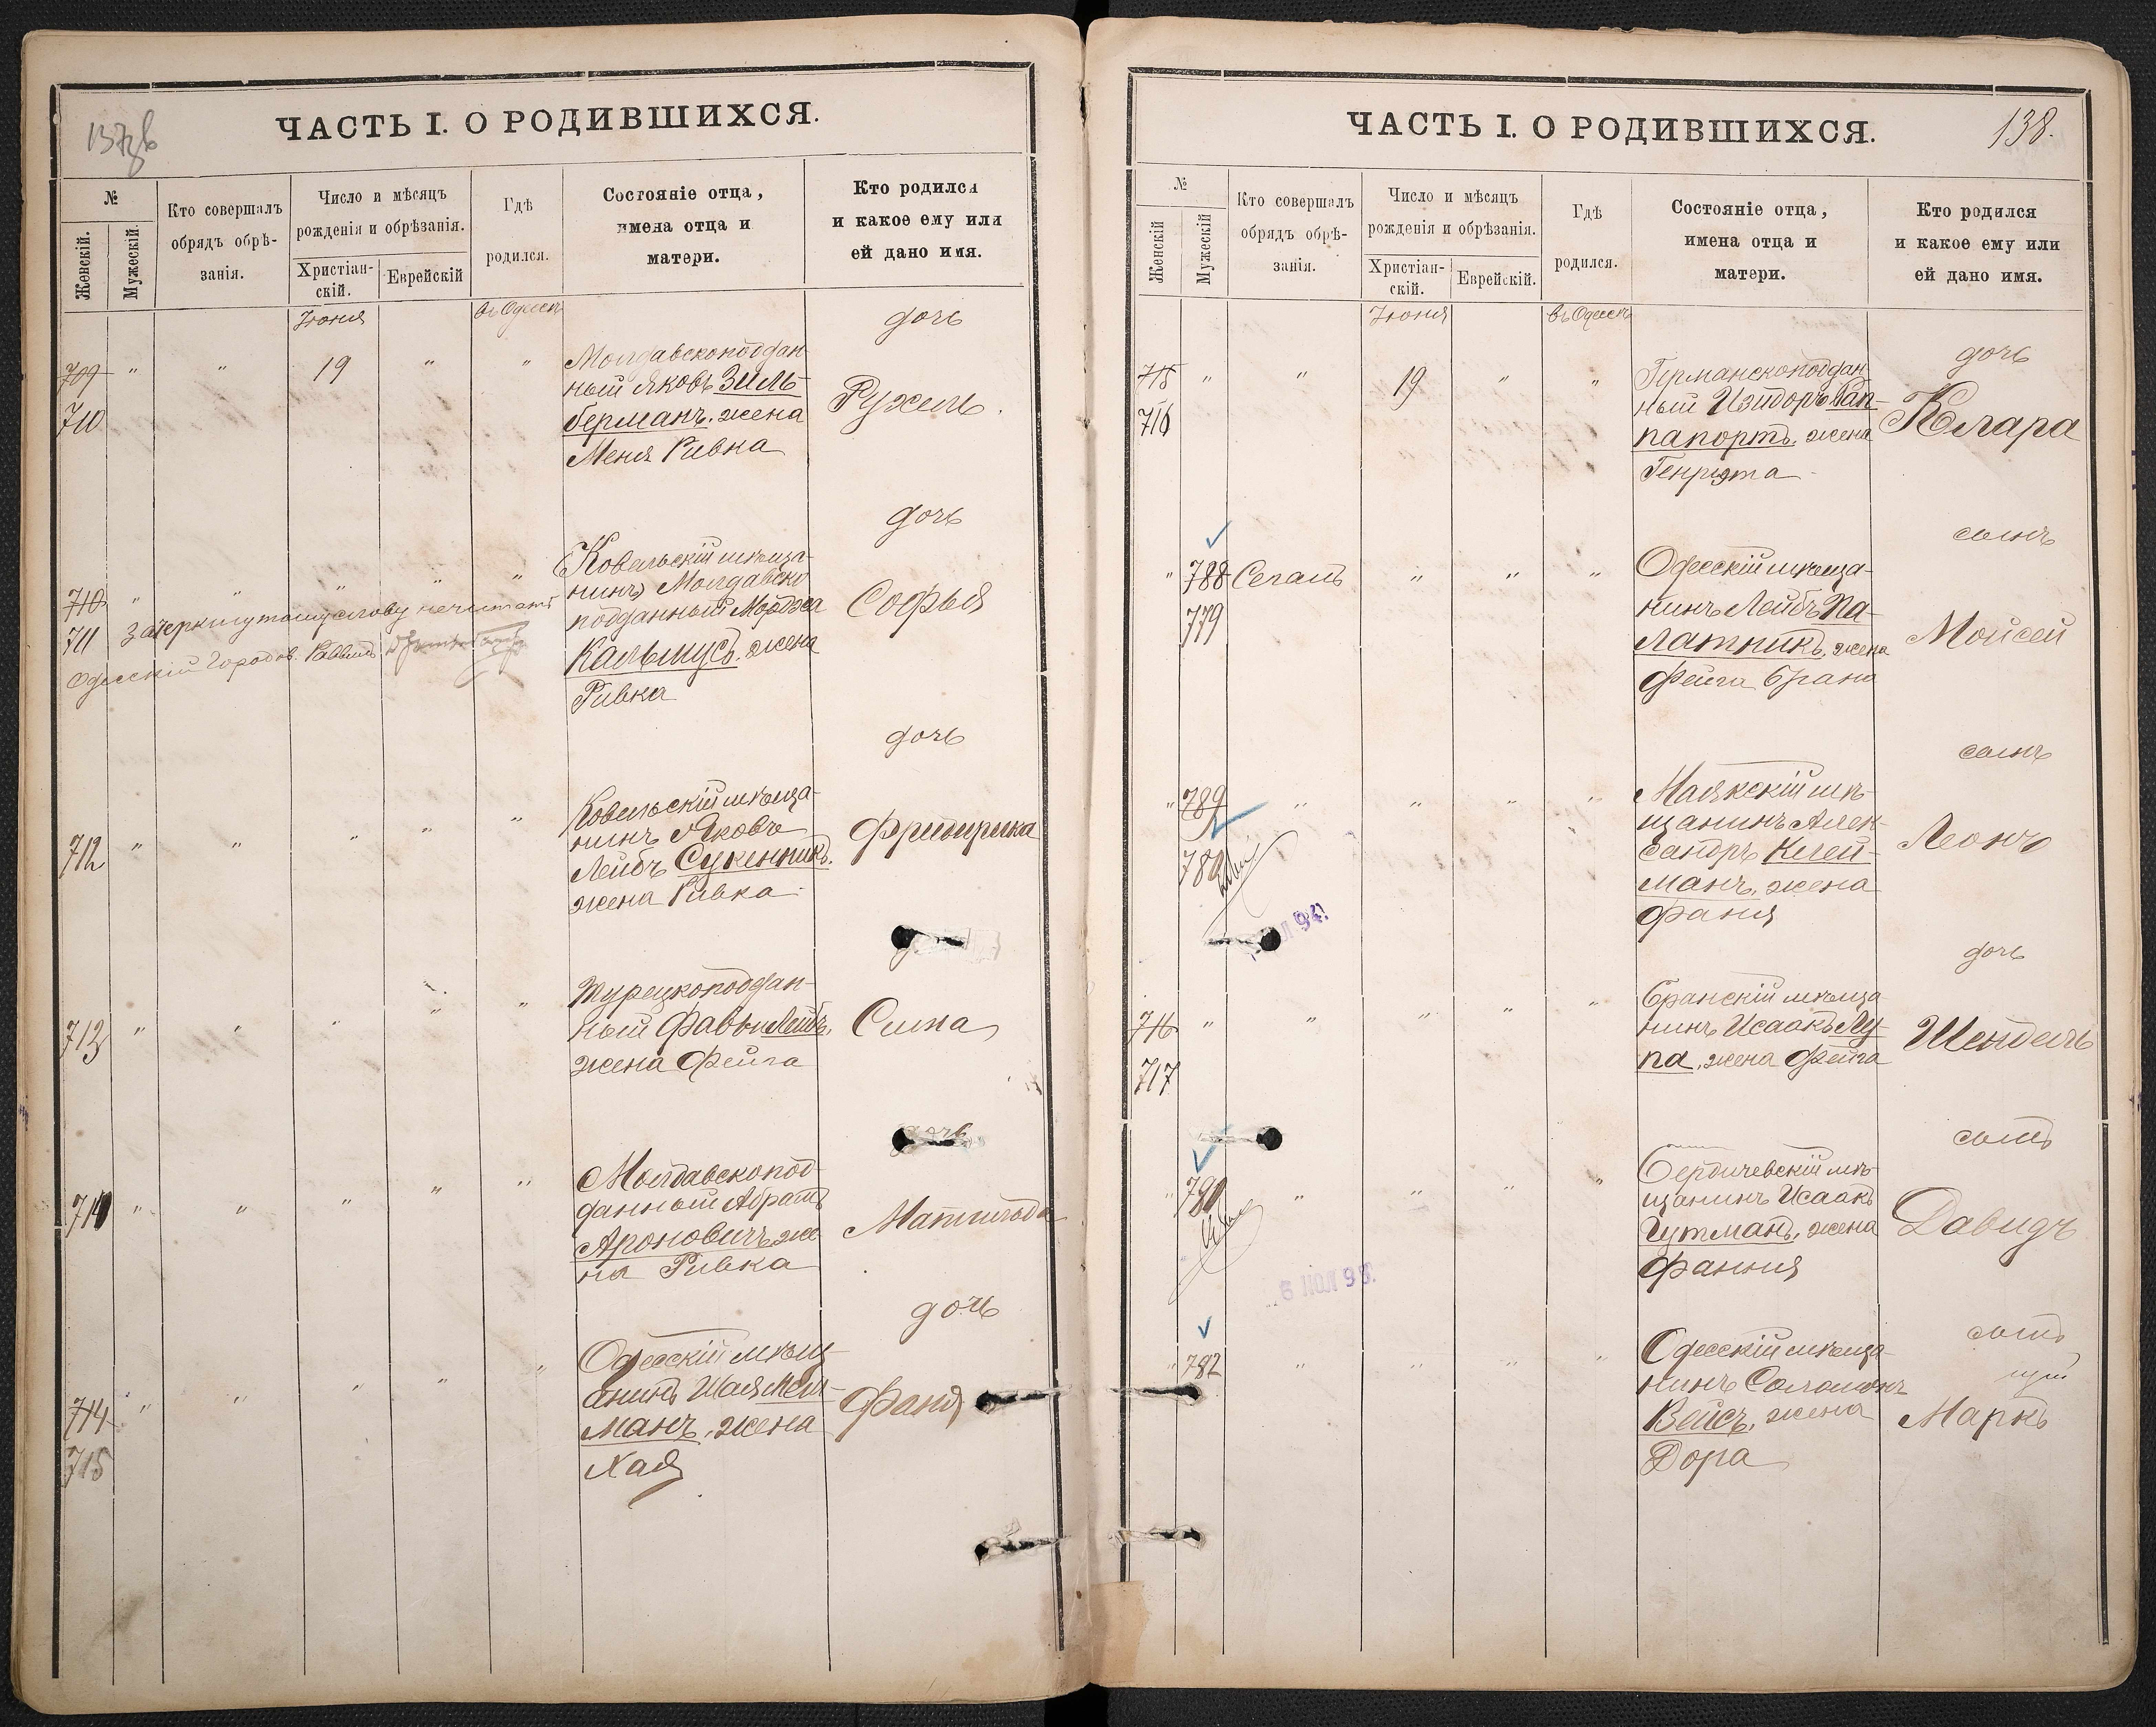 137 об
ЧАСТЬ I. О РОДИВШИХСЯ.
№
Женскій.
Мужескій.
Кто совершалъ
обрядъ обрѣ-
занія.
Число и мѣсяцъ
рожденія и обрѣзанія.
Христіан-
скій.
Еврейскій
Гдѣ
родился.
Состояніе отца,
имена отца и
матери.
Кто родился
и какое ему или
ей дано имя.
Іюня
въ Одессѣ
дочь
709 " " 19 " "
710
Молдавскоподдан-
ный Яковъ Зиль-
берманъ, жена
Меня Ривка
Ружель.
дочь
710 " " " " "
711 Зачеркнутому слову не читать
Одесскій Городов. Раввинъ
(Ковельскій мѣща-
нинъ) Молдавско
подданный Мордха
Кальмусъ, жена
Ривка
Софья
дочь
712 " " " " "
Ковельскій мѣща-
нинъ Яковъ
Лейбъ Сукенникъ.
жена Ривка
Фридирика
713 " " " " "
Турецкоподдан-
ный Фавы Лейбъ,
жена Фейга
Сима
дочь
714 " " " " "
Молдавскопод-
данный Абрамъ
Ароновичъ, же
на Ривка
Матильда
дочь
714 " " " " "
715
Одесскій мѣщ-
анинъ Шая Мель-
манъ, жена
Хая
Фаня
138.
ЧАСТЬ I. О РОДИВШИХСЯ.
№
Женскій
Мужескій
Кто совершалъ
обрядъ обрѣ-
занія.
Число и мѣсяцъ
рожденія и обрѣзанія.
Христіан-
скій.
Еврейскій.
Гдѣ
родился.
Состояніе отца,
имена отца и
матери.
Кто родился
и какое ему или
ей дано имя.
Іюня
въ Одессѣ
дочь
715 " " 19 " "
716
Германскоподдан
ный Изидоръ Рап-
папортъ, жена
Генріэта
Клара
сынъ
" 788 Сегалъ " " "
779
Одесскій мѣща-
нинъ Лейбъ Па-
латникъ, жена
Фейга Брана
Мойсей
сынъ
" 789 " " " "
780
Маякскій мѣ-
щанинъ Алек-
сандръ Клей-
манъ, жена
Фаня
Леонъ
дочь
716 " " " " "
717
Бранскій мѣща
нинъ Исаакъ Лу-
па, жена Фейга
Шендель
сынъ
" 781 " " " "
Бердичевскій мѣ-
щанинъ Исаакъ
Гутманъ, жена
Фанния
Давидъ
сынъ
" 782 " " " "
Одесскій мѣща-
нинъ Соломонъ
Вейсъ, жена
Дора
Маркъ